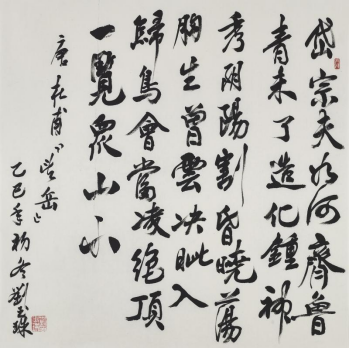 岱宗夫如何齊魯
青未了造化鍾神
秀阴陽割昏曉蕩
胸生曾雲决眦入
歸鳥會當凌絶頂
一覽眾山小
唐杜甫《望岳》
乙巳年初冬劉玉珠